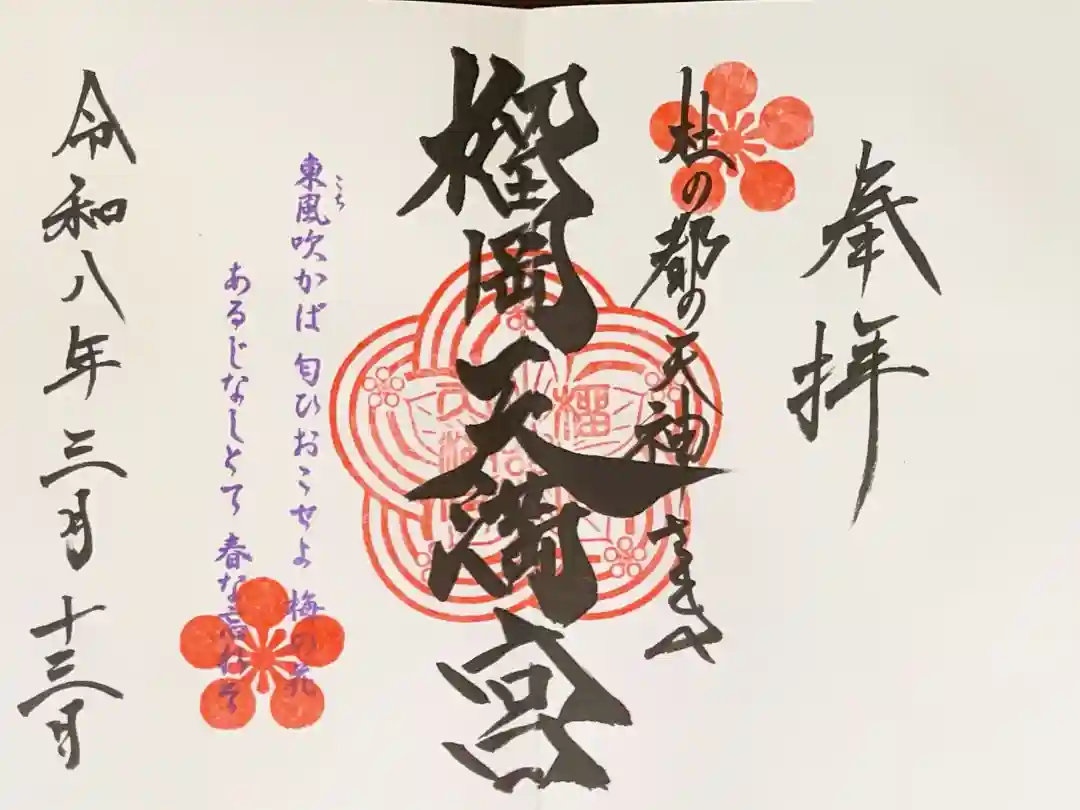 奉拝
杜の都の天神さま
榴岡天満宮
こち
東風吹かば 匂ひおこせよ 梅の花
あるじなしとて 春な忘れそ
令和八年三月十三日